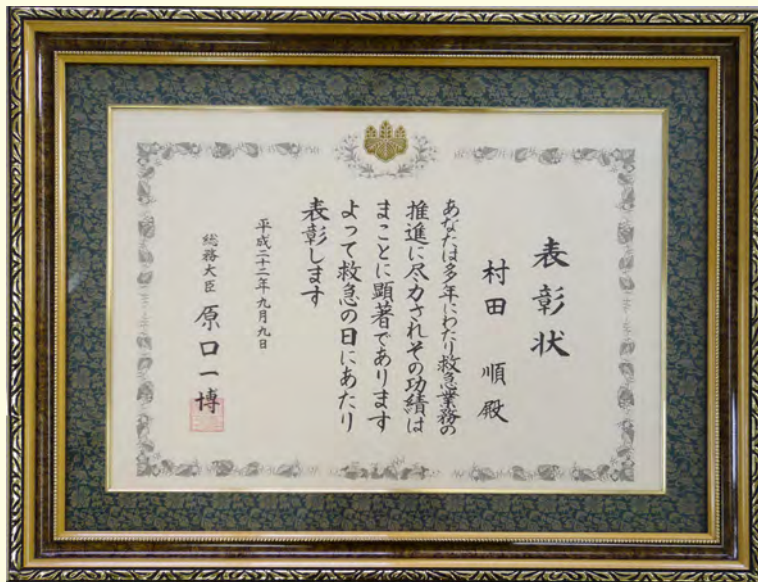 表彰状
村田 順殿
あなたは多年にわたり救急業務の
推進に尽力されその功績は
まことに顕著であります
よって救急の日にあたり
表彰します
平成二十二年九月九日
総務大臣 原口一博